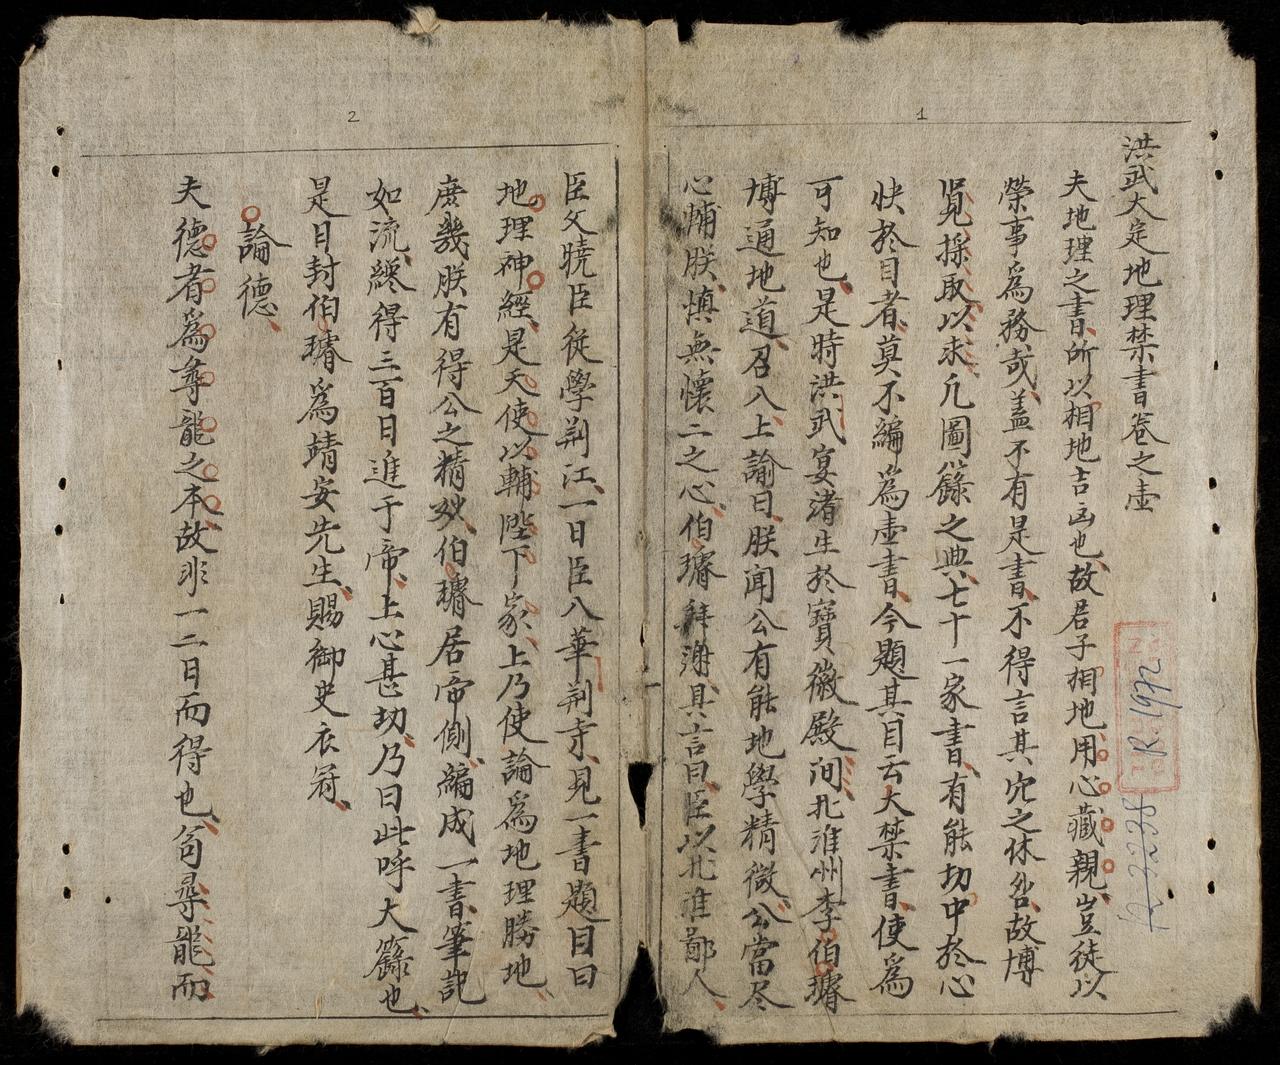 1
洪武大定地理禁書卷之壺
夫地理之書所以相地吉凶也故君子相地用心藏親豈徒以
榮事爲務㦲盖不有是書不得言其穴之休咎故博
覓採取以求凡圖籙之典七十一家書有能切中於心
快於目者莫不編爲壶書今題其目云大禁書使爲
可知也是時洪武宴渚生於寶徽殿间北淮州李伯璿
博通地道召入上諭曰朕聞公有能地學精微公當尽
心輔朕慎無懷二之心伯璿拜謝具言曰臣以北淮鄙人
2
臣父曉臣從學荆江一日臣入華荆寺見一書題目曰
地理神經是天使以輔陛下家上乃使論爲地理勝地
庶幾朕有得公之精妙伯璿居帝側編成一書筆記
如流終得三百日進于帝上心甚切乃曰此呼大籙也
是日封伯璿爲靖安先生賜御史衣冠
論德
夫德者爲尋龍之本故非一二日而得也苟尋龍而
R.1992